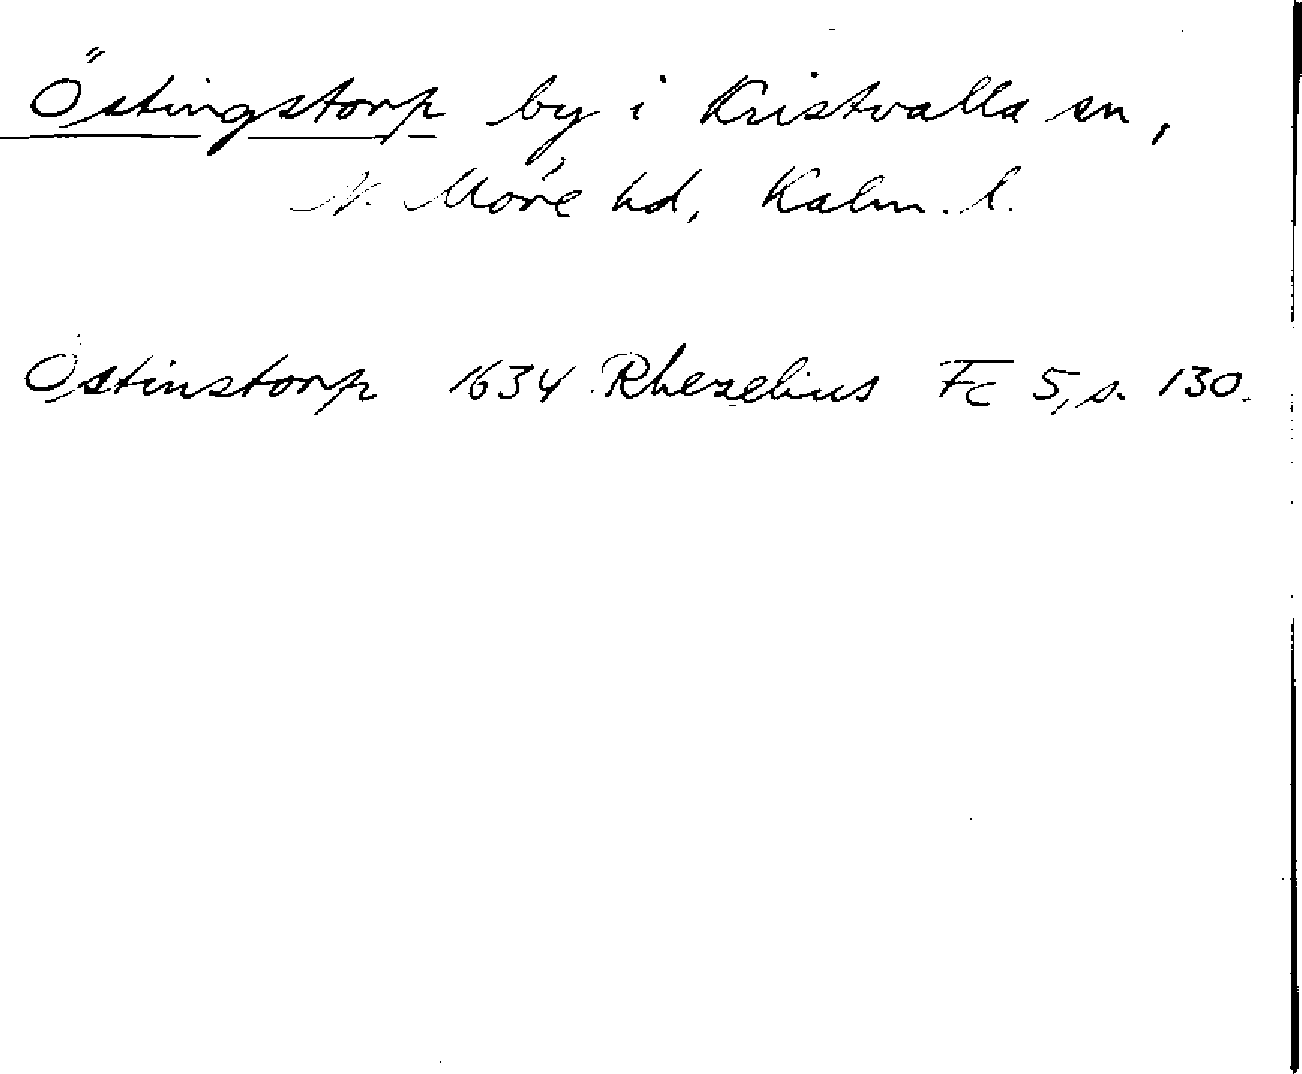 Östingstorp by i Kristvalla sn,
N. Möre hd, Kalm. l.
Östinstorp 1634 Rhezelius Fc 5, s. 130.